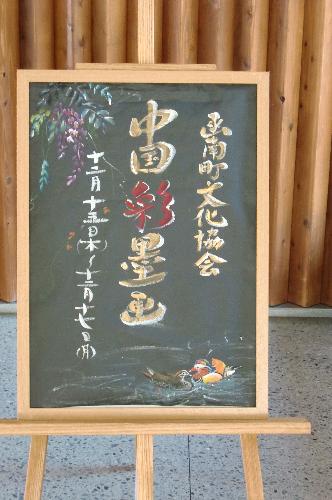 函南町文化協会
中国彩墨画
十二月十五日(木)～十二月十七日(月)